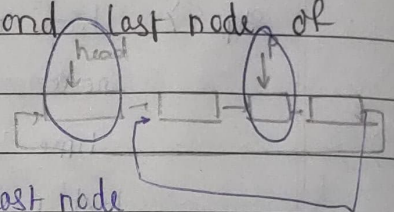 ond last node of
head
P
ast node